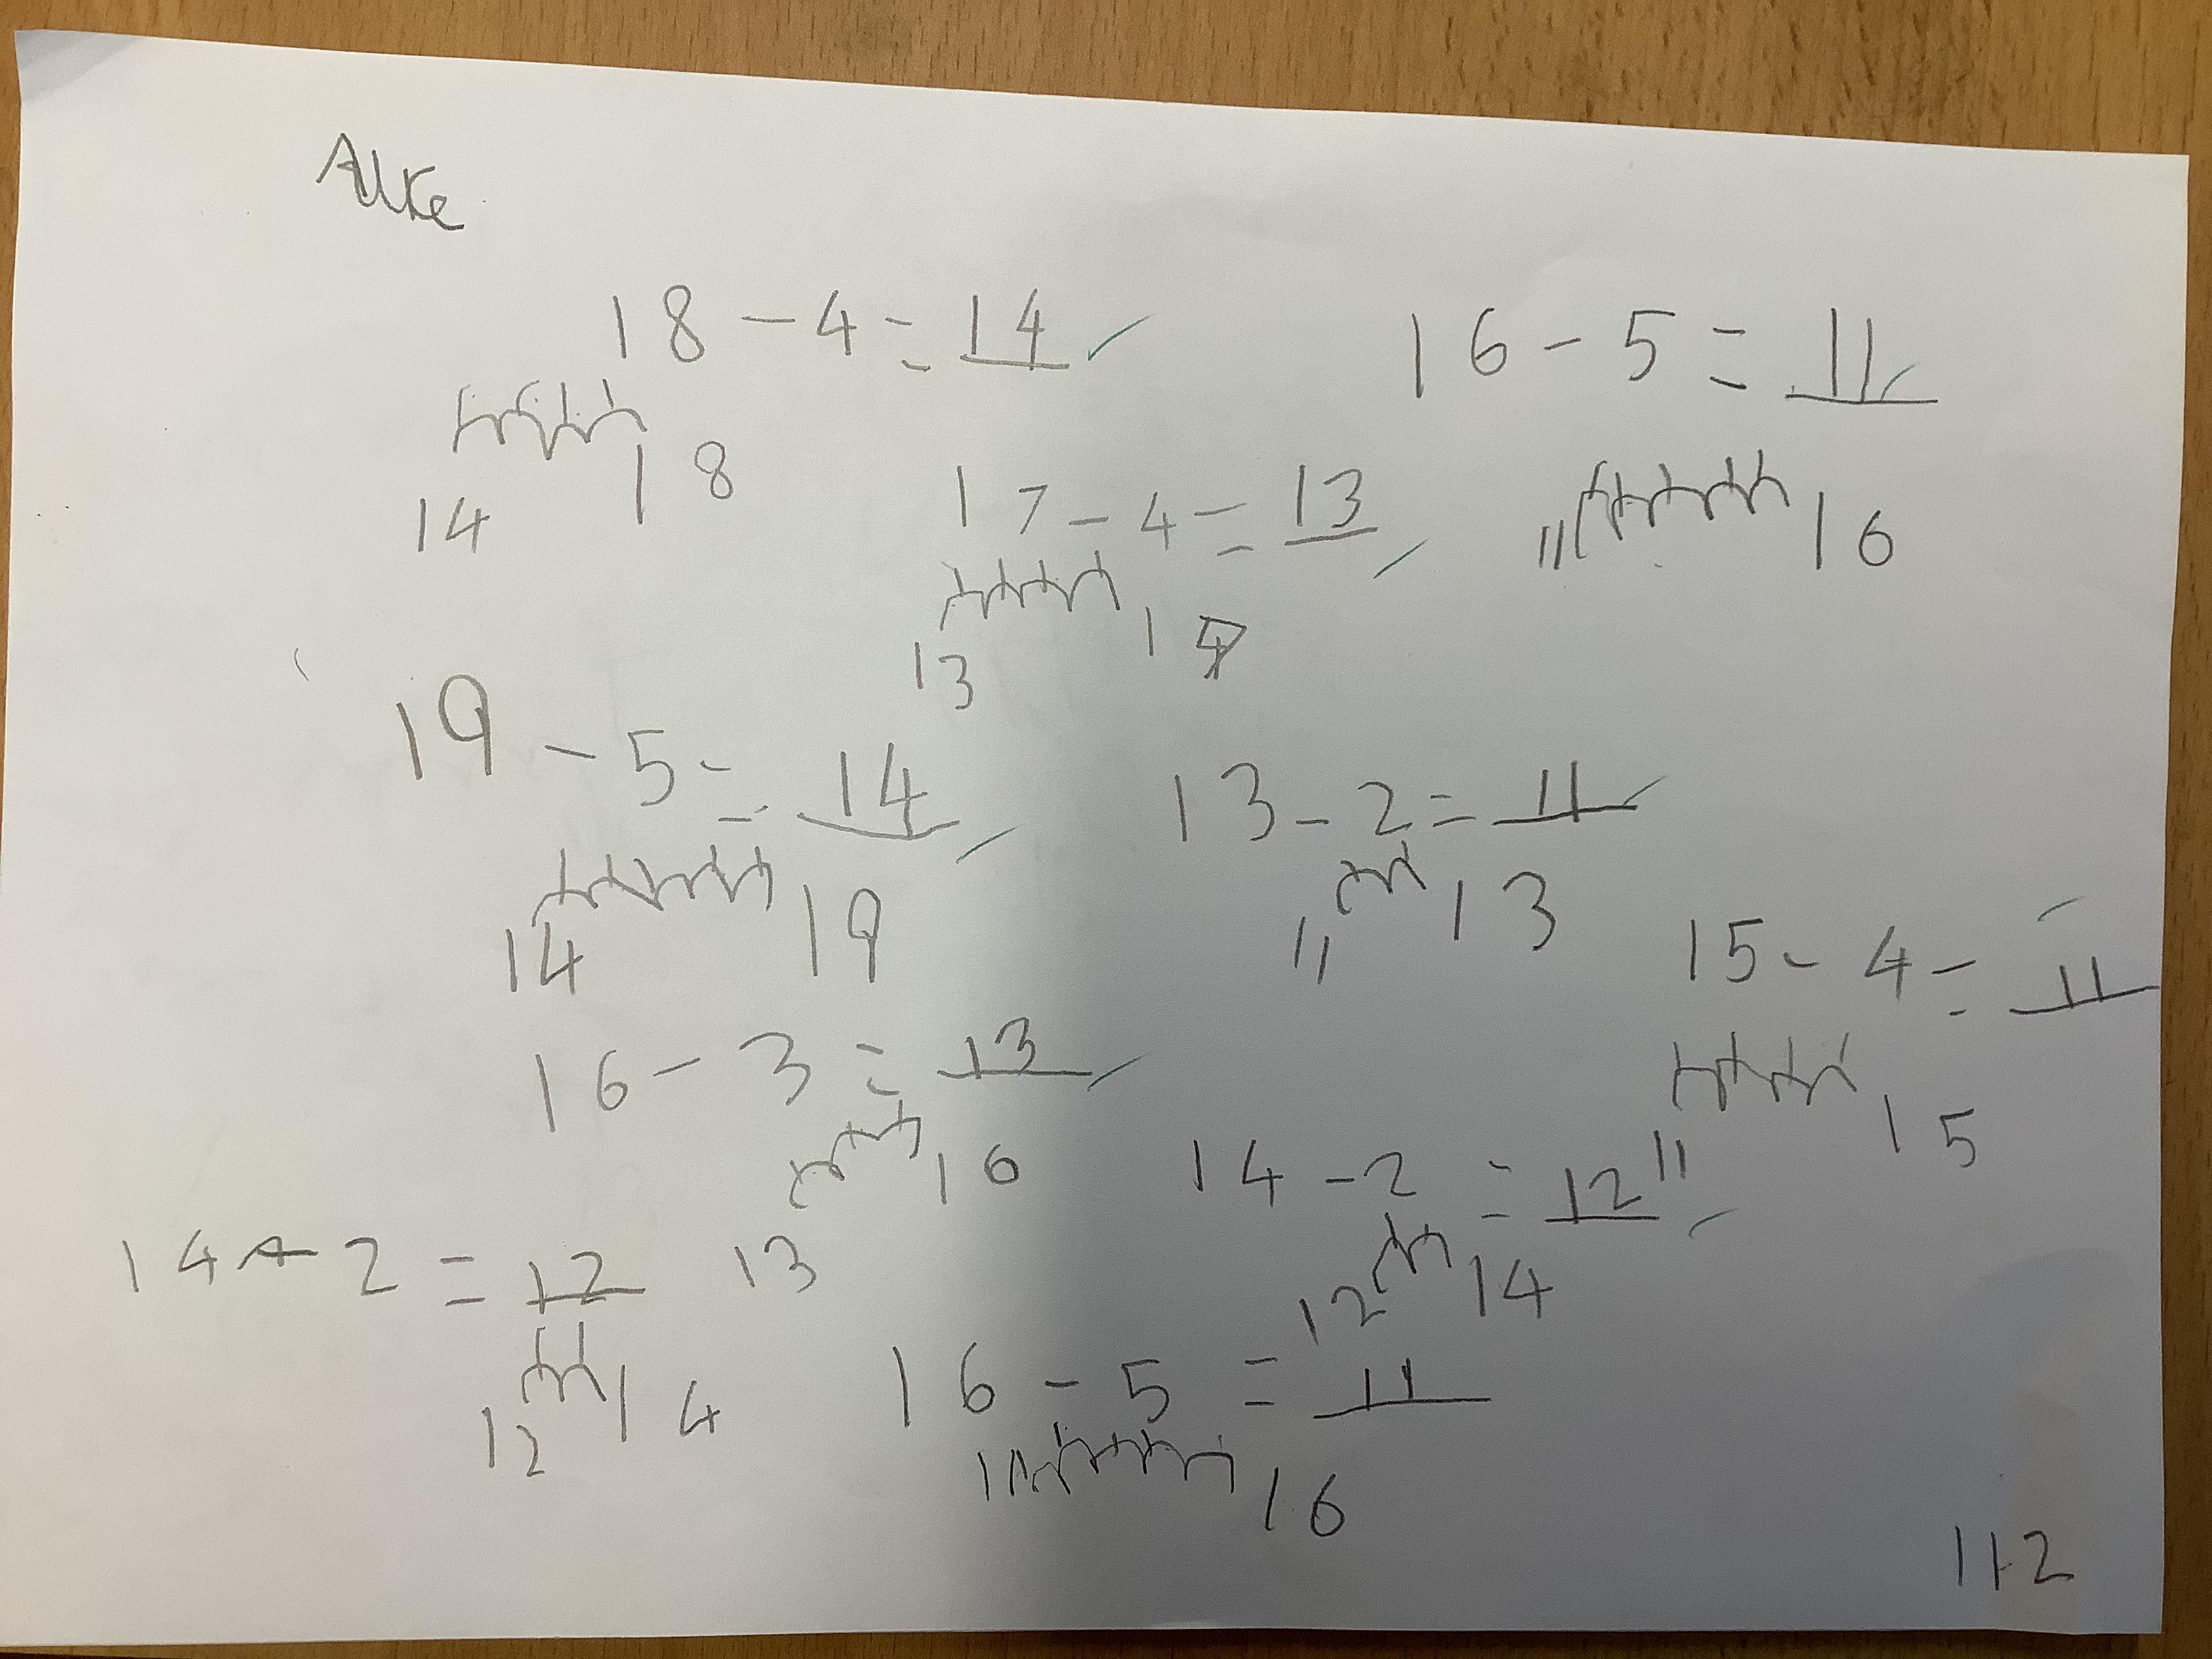 Alke
18 - 4 = 14 ✓
14 18
16 - 5 = 11 ✓
11 16
17 - 4 = 13 ✓
13 17
19 - 5 = 14 ✓
14 19
13 - 2 = 11 ✓
11 13
15 - 4 = 11 ✓
11 15
16 - 3 = 13 ✓
13 16
14 - 2 = 12 ✓
12 14
14 - 2 = 12
12 14
16 - 5 = 11
11 16